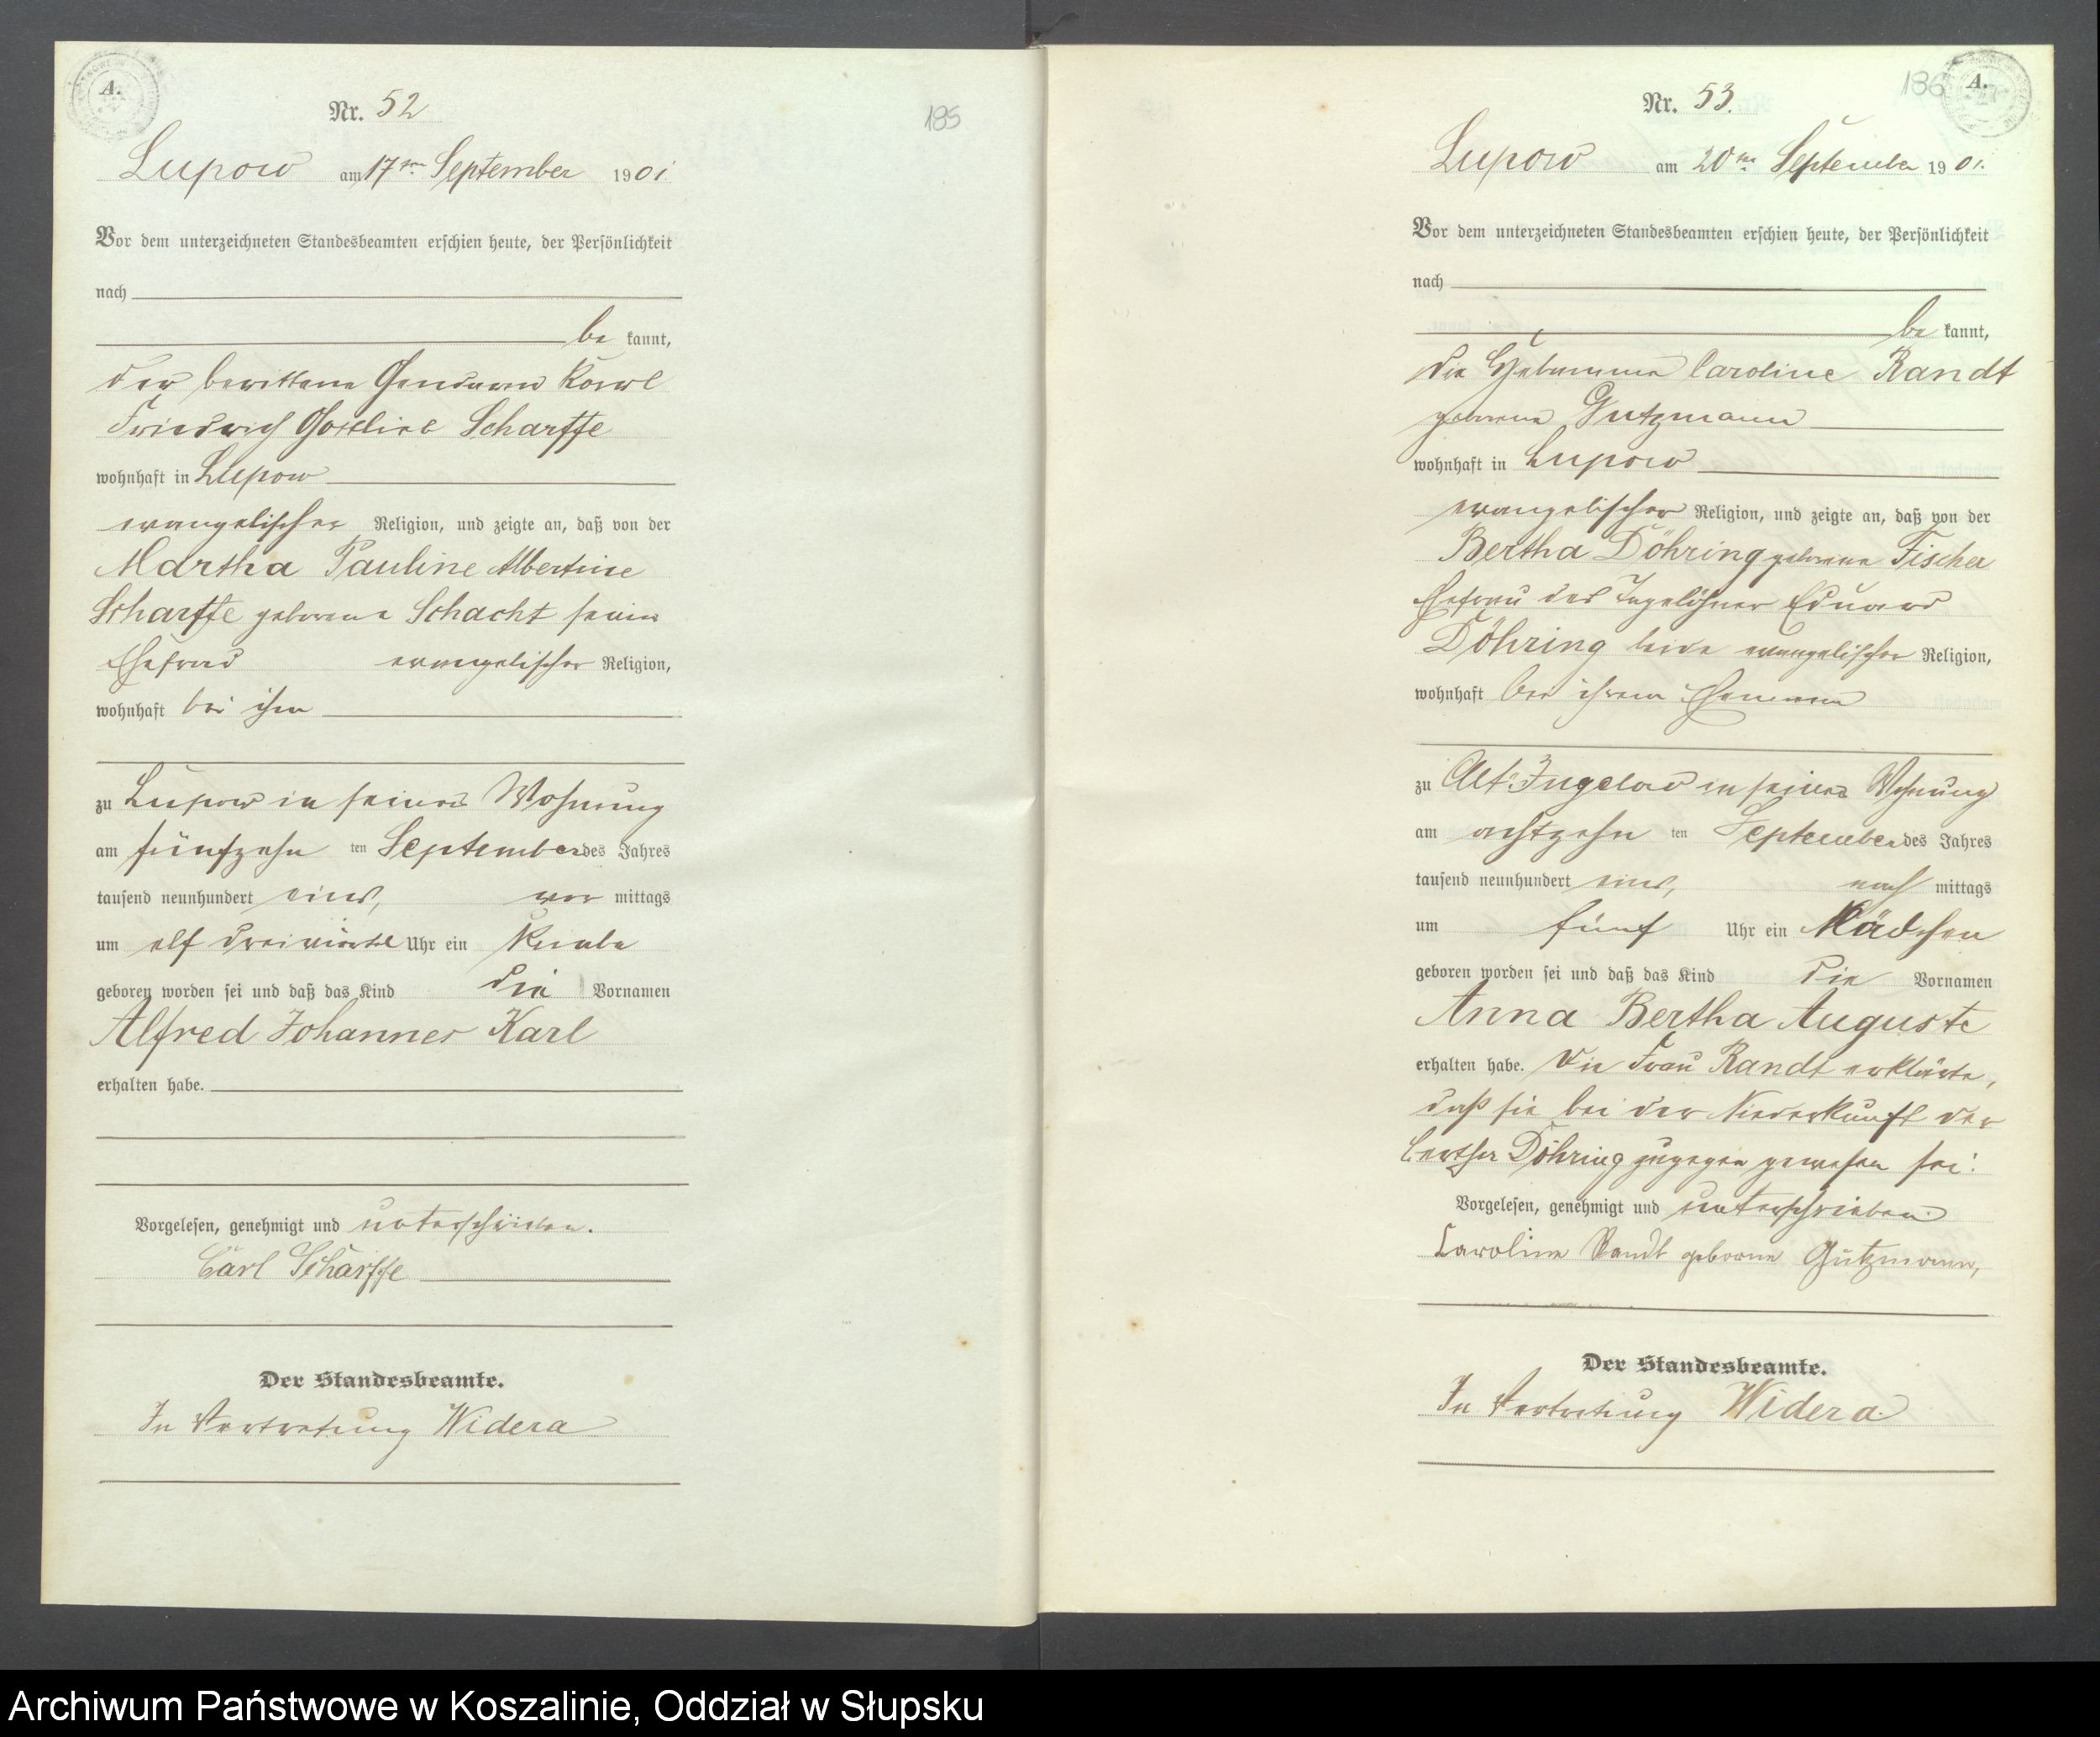 A.
Nr. 52
185
Lupow am 17ten September 1901
Vor dem unterzeichneten Standesbeamten erschien heute, der Persönlichkeit
nach
be kannt,
der berittene Gendarm Karl
Friedrich Gottlieb Scharffe
wohnhaft in Lupow
evangelischer Religion, und zeigte an, daß von der
Martha Pauline Albertine
Scharffe geborene Schacht seiner
Ehefrau evangelischer Religion,
wohnhaft bei ihm
zu Lupow in seiner Wohnung
am fünfzehn ten September des Jahres
tausend neunhundert eins, vor mittags
um elf dreiviertel Uhr ein Knabe
geboren worden sei und daß das Kind die Vornamen
Alfred Johannes Karl
erhalten habe.
Vorgelesen, genehmigt und unterschrieben.
Carl Scharffe
Der Standesbeamte.
In Vertretung Widera
186
A.
Nr. 53.
Lupow am 20ten September 1901.
Vor dem unterzeichneten Standesbeamten erschien heute, der Persönlichkeit
nach
be kannt,
die Hebamme Caroline Randt
geborene Gutzmann
wohnhaft in Lupow
evangelischer Religion, und zeigte an, daß von der
Bertha Döhring geborene Fischer
Ehefrau des Tagelöhner Eduard
Döhring beide evangelischer Religion,
wohnhaft bei ihrem Ehemann
zu Alt Jugelow in seiner Wohnung
am achtzehn ten September des Jahres
tausend neunhundert eins, nach mittags
um fünf Uhr ein Mädchen
geboren worden sei und daß das Kind die Vornamen
Anna Bertha Auguste
erhalten habe. Die Frau Randt erklärte,
daß sie bei der Niederkunft der
Bertha Döhring zugegen gewesen sei.
Vorgelesen, genehmigt und unterschrieben
Caroline Randt geborne Gutzmann,
Der Standesbeamte.
In Vertretung Widera
Archiwum Państwowe w Koszalinie, Oddział w Słupsku